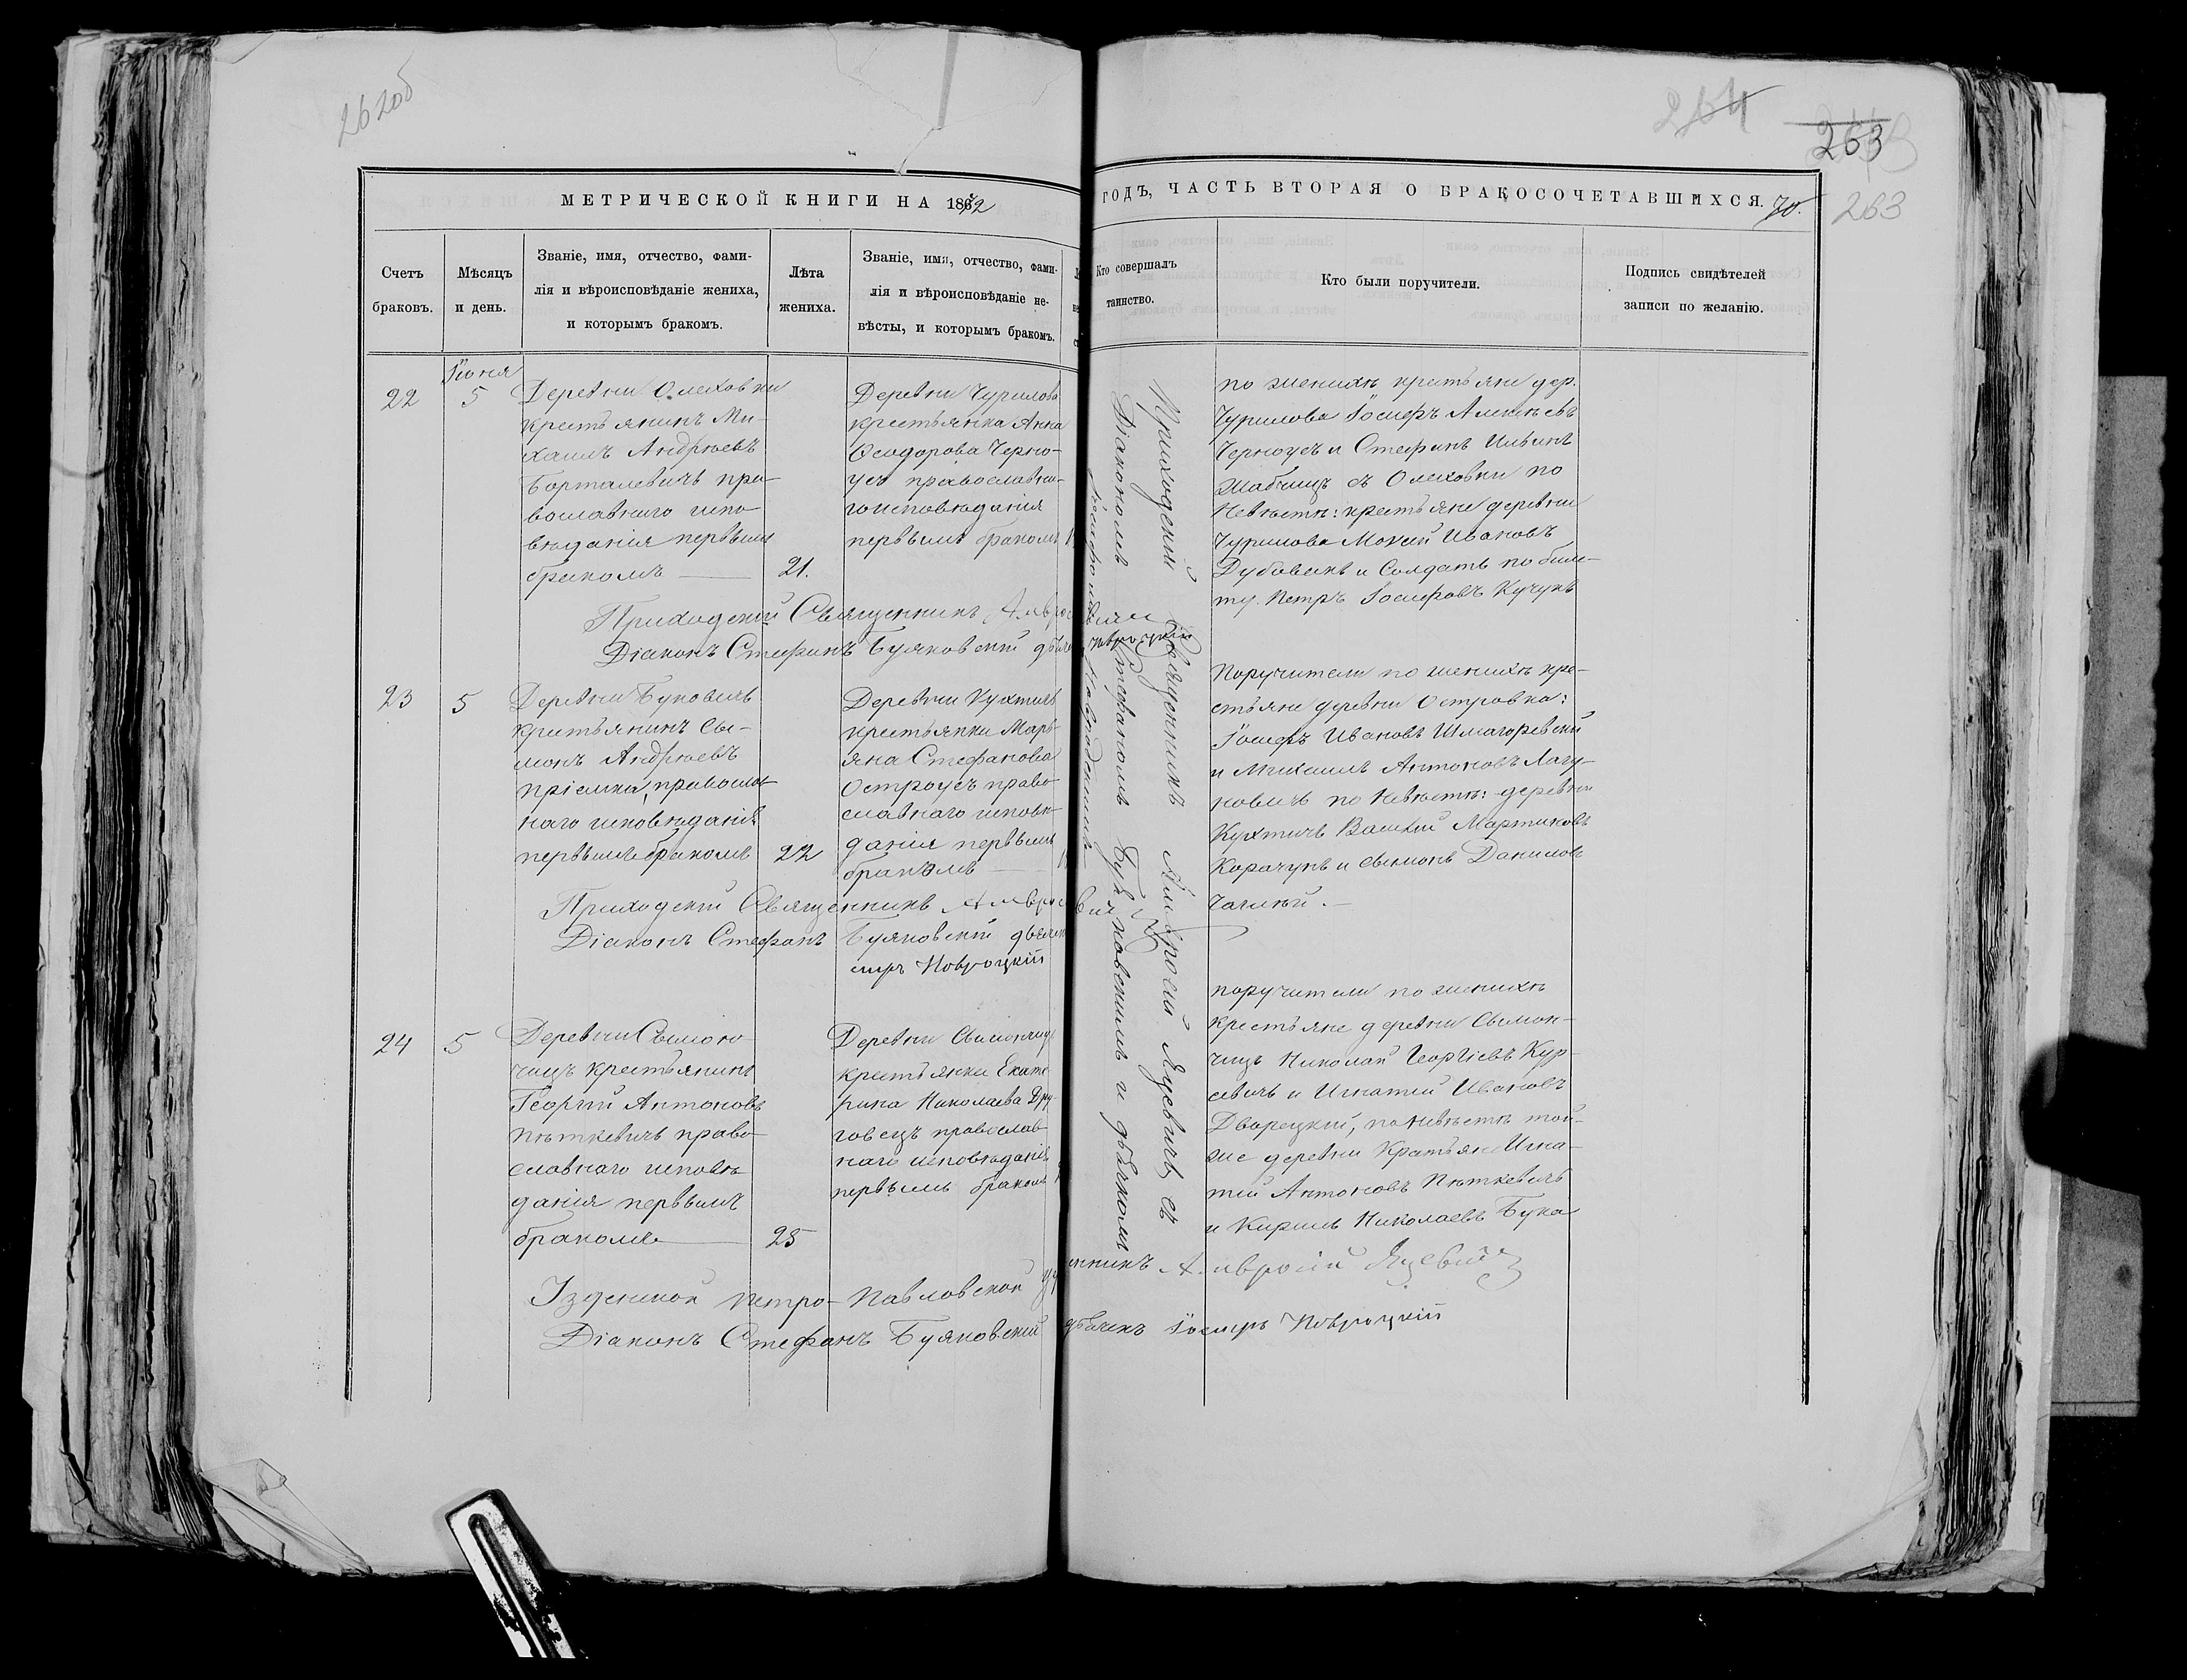 262об
264
263
263
МЕТРИЧЕСКОЙ КНИГИ НА 1872
ГОДЪ, ЧАСТЬ ВТОРАЯ О БРАКОСОЧЕТАВШИХСЯ. 70.
Счетъ
браковъ.
Мѣсяцъ
и день.
Званіе, имя, отчество, фами-
лія и вѣроисповѣданіе жениха,
и которымъ бракомъ.
Лѣта
жениха.
Званіе, имя, отчество, фами-
лія и вѣроисповѣданіе не-
вѣсты, и которымъ бракомъ.
Кто совершалъ
таинство.
Кто были поручители.
Подпись свидѣтелей
записи по желанію.
22
Іюня
5
Деревни Олеховки
крестьянинъ Ми-
хаилъ Андреевъ
Борталевичъ пра-
вославнаго испо-
вѣданія первымъ
бракомъ
21.
Деревни Чурилова
крестьянка Анна
Ѳеодорова Черно-
усъ православна-
го исповѣданія
первымъ бракомъ
по женихѣ крестьяне дер.
Чурилова Іосифъ Алексѣевъ
Черноусъ и Стефанъ Ильинъ
Жабчицъ съ Олеховки по
невѣстѣ: крестьяне деревни
Чурилова Мокей Ивановъ
Дубовикъ и Солдатъ по биле-
ту Петръ Іосифовъ Кучукъ
Приходскій Священникъ Амвросій
Діаконъ Стефанъ Буяковскій
23
5
Деревни Буковичъ
крестьянинъ Сы-
монъ Андреевъ
Пріемка, православ-
наго исповѣданія
первымъ бракомъ
22
Деревни Кухтичъ
крестьянка Марь-
яна Стефанова
Остроусъ право-
славнаго исповѣ-
данія первымъ
бракомъ
Поручители по женихѣ кре-
стьяне деревни Островка:
Іосифъ Ивановъ Шмагоревскій
и Михаилъ Антоновъ Лагу-
новичъ по невѣстѣ: деревни
Кухтичъ Василій Мартиновъ
Карачунъ и Сымонъ Даниловъ
Чаплій.
Приходскій Священникъ Амвросій
Діаконъ Стефанъ Буяковскій дьячекъ
Новроцкій
24
5
Деревни Сымон-
чицъ крестьянинъ
Георгій Антоновъ
Пѣткевичъ право-
славнаго исповѣ-
данія первымъ
бракомъ
25
Деревни Сымончицъ
крестьянка Екате-
рина Николаева Дру-
говецъ православ-
наго исповѣданія
первымъ бракомъ
поручители по женихѣ
крестьяне деревни Сымон-
чицъ Николай Георгіевъ Кур-
севичъ и Игнатій Ивановъ
Дворецкій, по невѣстѣ той-
же деревни Кратьяне Игна-
тій Антоновъ Пѣткевичъ
и Кирилъ Николаевъ Бука
Приходскій Священникъ Амвросій Яцевичъ съ
Діакономъ Стефаномъ Буяковскимъ и дьячкомъ
Іосифомъ Навроцкимъ
Узденской Петро-Павловской
Амвросій Яцевичъ
Діаконъ Стефанъ Буяковскій дьячекъ Іосифъ Новроцкій